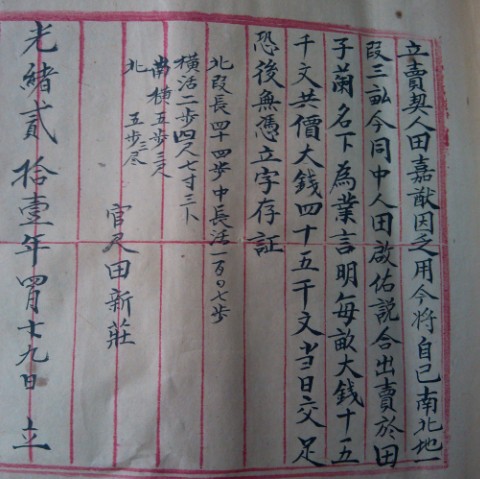 立賣契人田嘉猷因乏用今将自己南北地一
段三畝今同中人田啟佑説合出賣於田
子蘭名下為業言明每畝大钱十五
千文共價大钱四十五千文当日交足
恐後無憑立字存証
北段長四十四步中長活一百〇七步
横活二步四尺七寸三卜
南横五步三尺
北 五步三尺
官尺田新莊
光緒貳拾壹年四月十九日 立